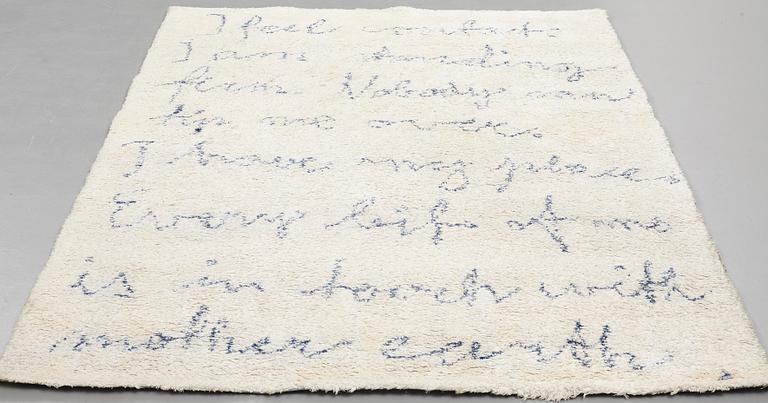 I feel contact:
I am standing
firm. Nobody can
tip me over.
I have my place.
Every bit of me
is in touch with
mother earth.